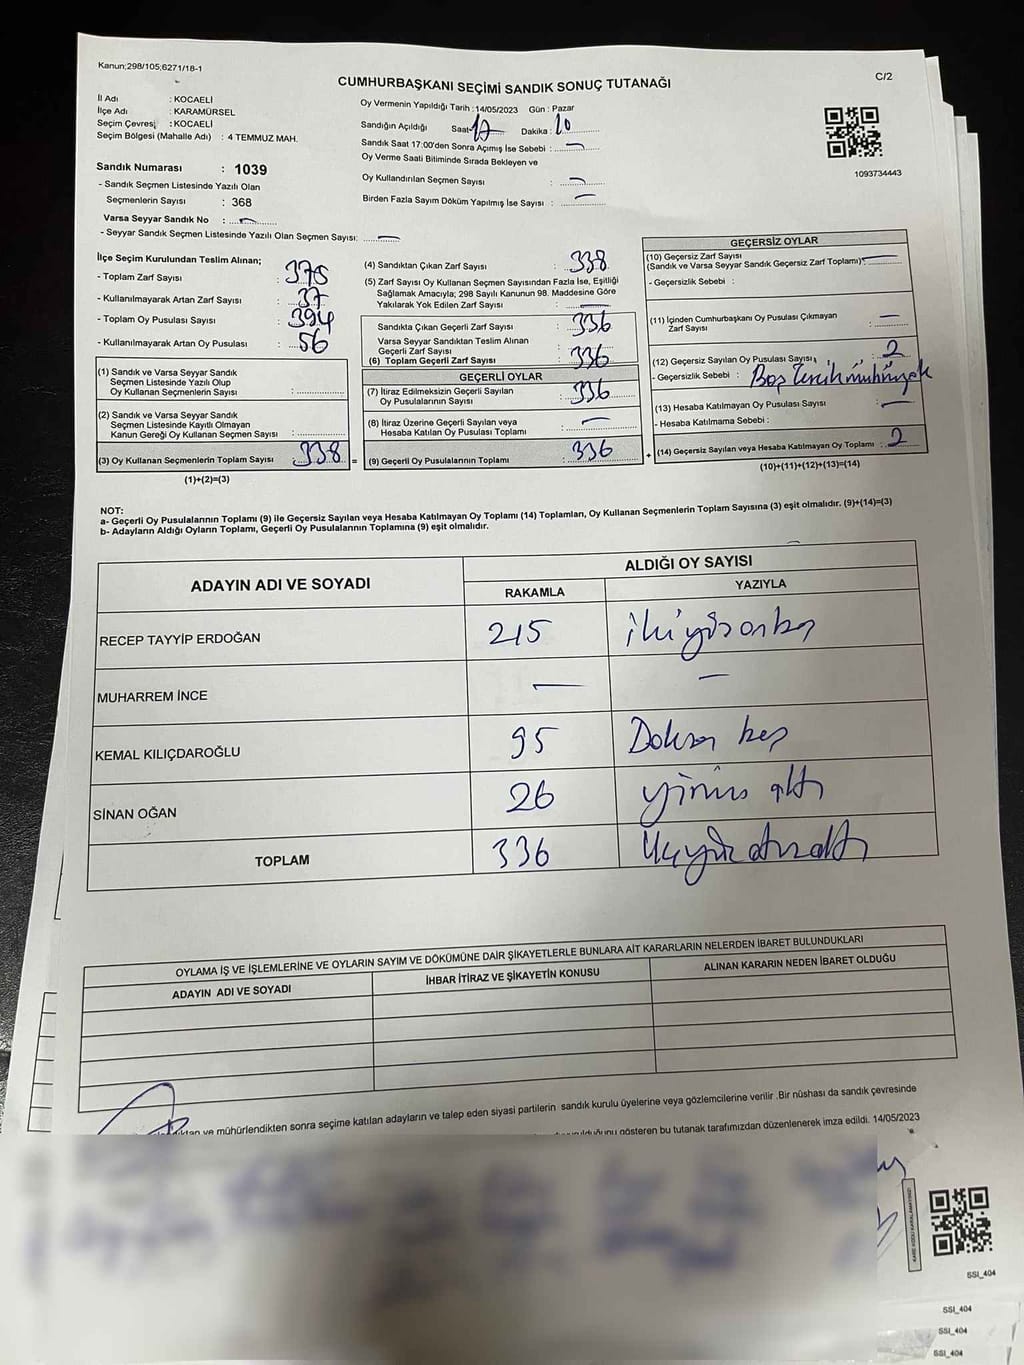 Kanun;298/105;6271/18-1
C/2
CUMHURBAŞKANI SEÇİMİ SANDIK SONUÇ TUTANAĞI
İl Adı : KOCAELİ
İlçe Adı : KARAMÜRSEL
Seçim Çevresi : KOCAELİ
Seçim Bölgesi (Mahalle Adı) : 4 TEMMUZ MAH.
Sandık Numarası : 1039
- Sandık Seçmen Listesinde Yazılı Olan
Seçmenlerin Sayısı : 368
Varsa Seyyar Sandık No : —
- Seyyar Sandık Seçmen Listesinde Yazılı Olan Seçmen Sayısı: —
Oy Vermenin Yapıldığı Tarih : 14/05/2023 Gün : Pazar
Sandığın Açıldığı Saat 17 Dakika : 10
Sandık Saat 17:00'den Sonra Açımış İse Sebebi : —
Oy Verme Saati Bitiminde Sırada Bekleyen ve
Oy Kullandırılan Seçmen Sayısı : —
Birden Fazla Sayım Döküm Yapılmış İse Sayısı : —
1093734443
İlçe Seçim Kurulundan Teslim Alınan;
- Toplam Zarf Sayısı : 375
- Kullanılmayarak Artan Zarf Sayısı : 37
- Toplam Oy Pusulası Sayısı : 394
- Kullanılmayarak Artan Oy Pusulası : 56
(1) Sandık ve Varsa Seyyar Sandık
Seçmen Listesinde Yazılı Olup
Oy Kullanan Seçmenlerin Sayısı :
(2) Sandık ve Varsa Seyyar Sandık
Seçmen Listesinde Kayıtlı Olmayan
Kanun Gereği Oy Kullanan Seçmen Sayısı :
(3) Oy Kullanan Seçmenlerin Toplam Sayısı 338 =
(1)+(2)=(3)
(4) Sandıktan Çıkan Zarf Sayısı : 338
(5) Zarf Sayısı Oy Kullanan Seçmen Sayısından Fazla İse, Eşitliği
Sağlamak Amacıyla; 298 Sayılı Kanunun 98. Maddesine Göre
Yakılarak Yok Edilen Zarf Sayısı : —
Sandıkta Çıkan Geçerli Zarf Sayısı : 336
Varsa Seyyar Sandıktan Teslim Alınan
Geçerli Zarf Sayısı :
(6) Toplam Geçerli Zarf Sayısı : 336
GEÇERLİ OYLAR
(7) İtiraz Edilmeksizin Geçerli Sayılan
Oy Pusulalarının Sayısı : 336
(8) İtiraz Üzerine Geçerli Sayılan veya
Hesaba Katılan Oy Pusulası Toplamı : —
(9) Geçerli Oy Pusulalarının Toplamı : 336 +
GEÇERSİZ OYLAR
(10) Geçersiz Zarf Sayısı
(Sandık ve Varsa Seyyar Sandık Geçersiz Zarf Toplamı): —
- Geçersizlik Sebebi :
(11) İçinden Cumhurbaşkanı Oy Pusulası Çıkmayan
Zarf Sayısı : —
(12) Geçersiz Sayılan Oy Pusulası Sayısı : 2
- Geçersizlik Sebebi : Boş Tercih
(13) Hesaba Katılmayan Oy Pusulası Sayısı : —
- Hesaba Katılmama Sebebi :
(14) Geçersiz Sayılan veya Hesaba Katılmayan Oy Toplamı : 2
(10)+(11)+(12)+(13)=(14)
NOT:
a- Geçerli Oy Pusulalarının Toplamı (9) ile Geçersiz Sayılan veya Hesaba Katılmayan Oy Toplamı (14) Toplamları, Oy Kullanan Seçmenlerin Toplam Sayısına (3) eşit olmalıdır. (9)+(14)=(3)
b- Adayların Aldığı Oyların Toplamı, Geçerli Oy Pusulalarının Toplamına (9) eşit olmalıdır.
ADAYIN ADI VE SOYADI ALDIĞI OY SAYISI
RAKAMLA YAZIYLA
RECEP TAYYİP ERDOĞAN 215 ikiyüzonbeş
MUHARREM İNCE — —
KEMAL KILIÇDAROĞLU 95 Doksan beş
SİNAN OĞAN 26 yirmi altı
TOPLAM 336 Üçyüz otuzaltı
OYLAMA İŞ VE İŞLEMLERİNE VE OYLARIN SAYIM VE DÖKÜMÜNE DAİR ŞİKAYETLERLE BUNLARA AİT KARARLARIN NELERDEN İBARET BULUNDUKLARI
ADAYIN ADI VE SOYADI İHBAR İTİRAZ VE ŞİKAYETİN KONUSU ALINAN KARARIN NEDEN İBARET OLDUĞU
ve mühürlendikten sonra seçime katılan adayların ve talep eden siyasi partilerin sandık kurulu üyelerine veya gözlemcilerine verilir .Bir nüshası da sandık çevresinde
gösteren bu tutanak tarafımızdan düzenlenerek imza edildi. 14/05/2023
SSI_404
SSI_404
SSI_404
SSI_404